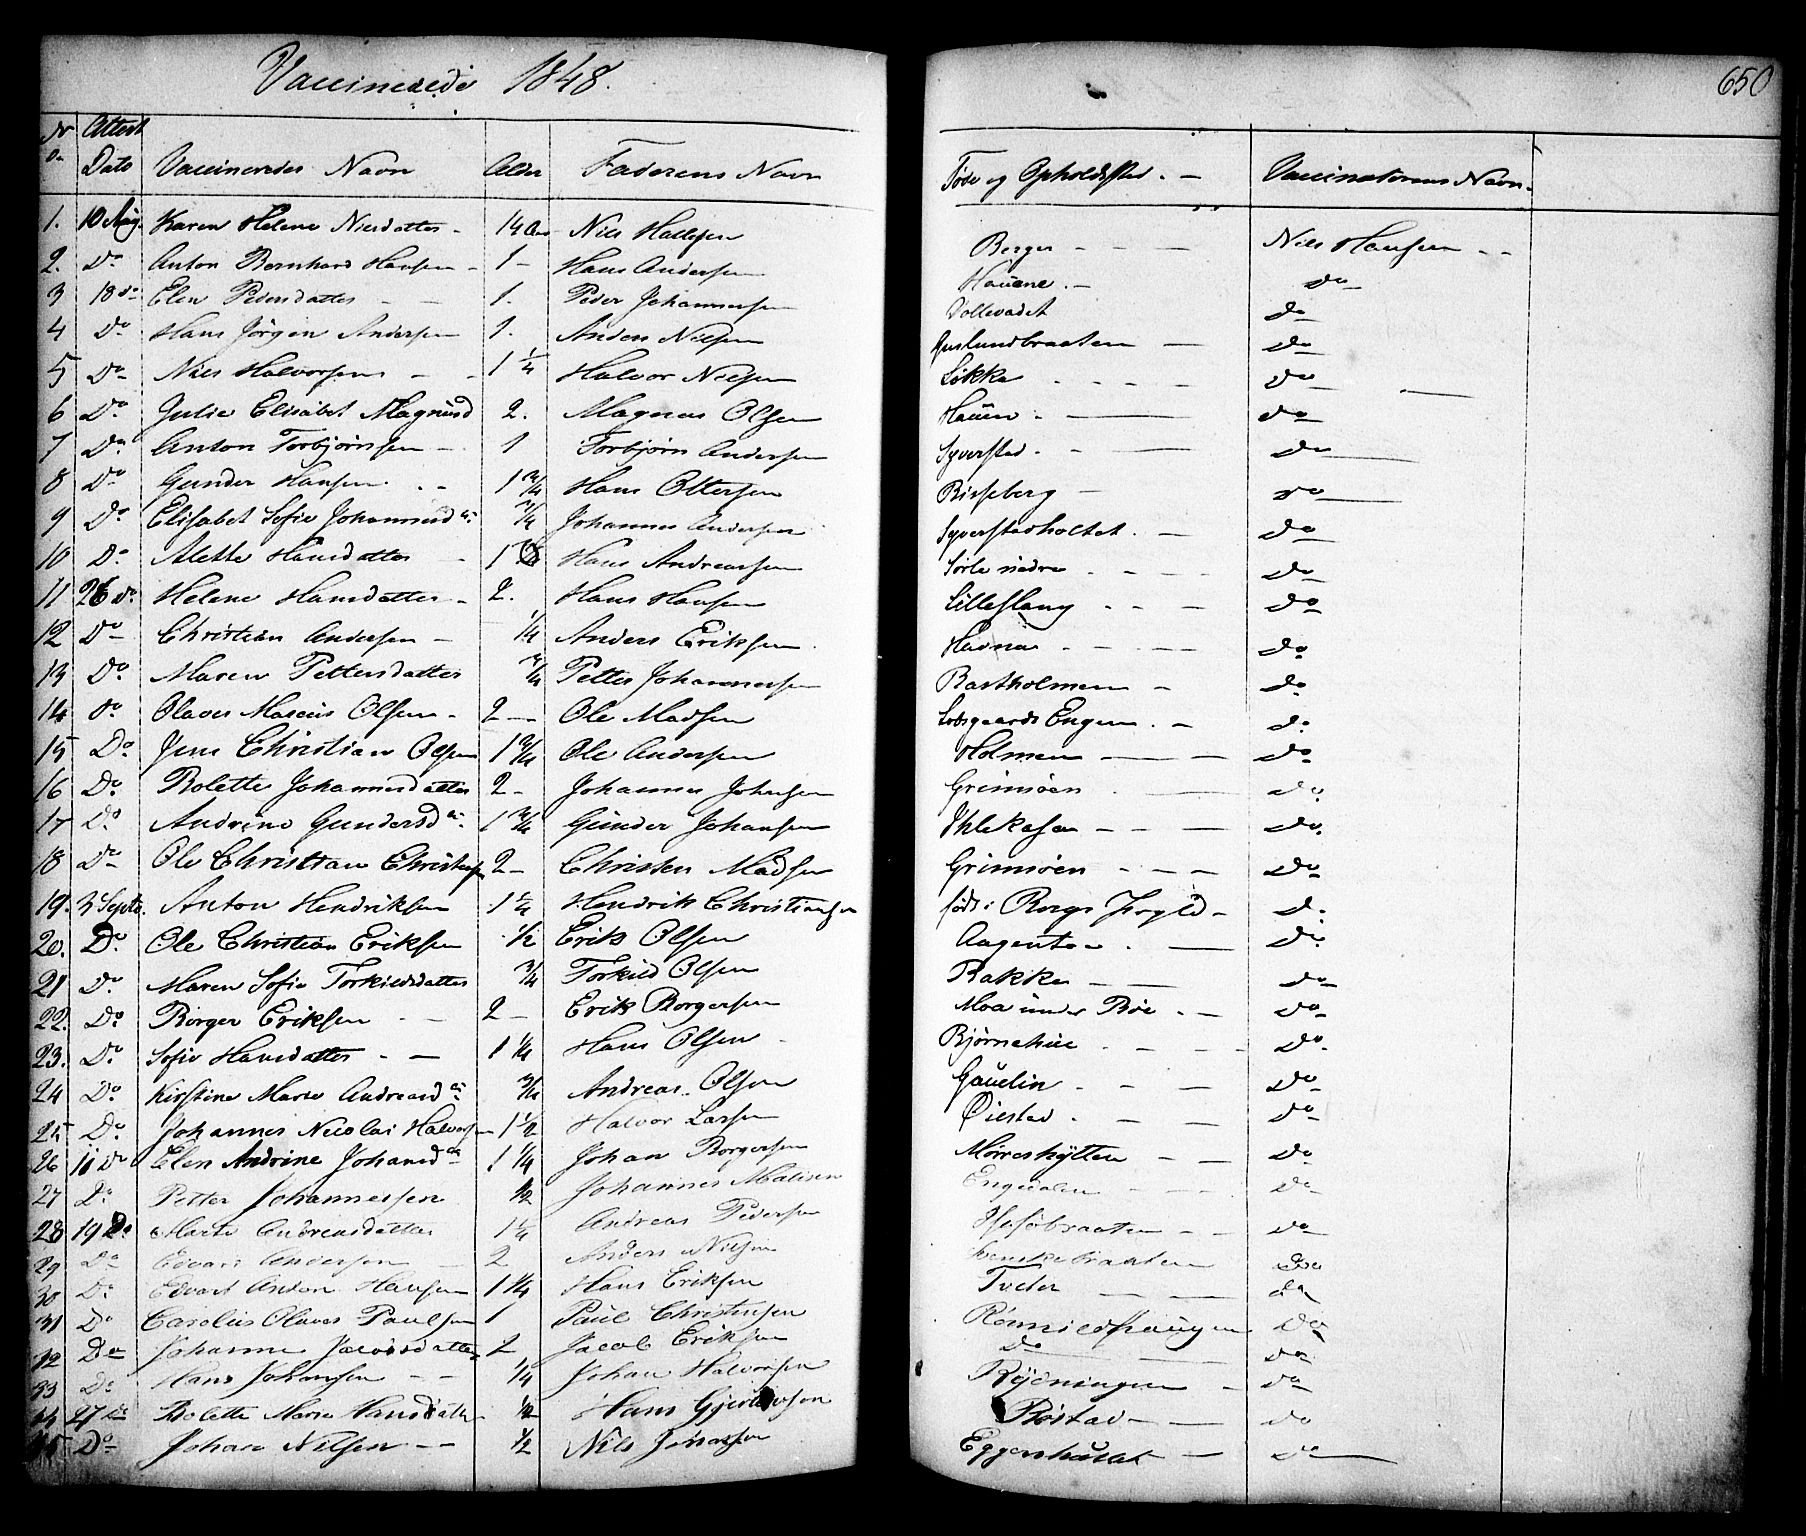 Vaccinerede 1848.
650
No Attest Dato Vaccineredes Navn Alder Faderens Navn Føde og Opholdssted. Vaccinatorens Navn.
1. 10 Aug. Karen Helene Nilsdatter 14 Nils Hansen Berger Nils Hansen
2. Do Anton Bernhard Hansen 1 Hans Andersen Hauene Do
3 18 do Elen Pedersdatter 1. Peder Johannesen Vollevadet Do
4 Do Hans Jörgen Andersen 1. Anders Nilsen Guslundbraaten Do
5 Do Nils Halvorsen 1 1/4 Halvor Nilsen Løkke Do
6 Do Julie Elisabet Magnusd 2. Magnus Olsen Hauen Do
7 Do Anton Torbjörnsen 1 Torbjörn Andersen Syverstad Do
8 Do Gunder Hansen 1 3/4 Hans Ottersen Bisseberg Do
9 Do Elisabet Sofie Johannesd. 3/4 Johannes Andersen Syverstadholtet Do
10 Do Alette Hansdatter 1 Hans Andreassen Sørle nedre Do
11 26 do Helene Hansdatter 2. Hans Hansen Lilleslang Do
12 Do Christian Andersen 1/4 Anders Eriksen Havna Do
13 Do Maren Pettersdatter 3/4 Petter Johannesen Bartholmen Do
14 Do Olaves Marcus Olsen 2 Ole Madsen Engen Do
15 Do Jens Christian Olsen 1 3/4 Ole Andersen Holmen Do
16 Do Bolette Johannesdatter 2 Johannes Johnsen Grimsöen Do
17 Do Andrine Gundersd. 1 3/4 Gunder Johansen Ihlekasa Do
18 Do Ole Christian Christensen 2 Christen Madsen Grimsöen Do
19. 3 Septb. Anton Hendriksen 1 1/4 Hendrik Christiansen født i Bergs Do
20. Do Ole Christian Eriksen 1/2 Erik Olsen Do
21 Do Maren Sofie Torkildsdatter 3/4 Torkild Olsen Bakke Do
22. Do Borger Eriksen 2 Erik Borgersen Moa under Böe Do
23. Do Sofie Hansdatter 1 1/4 Hans Olsen Björnehue Do
24 Do Kirstine Marie Andreasd. 3/4 Andreas Olsen Gauelin Do
25 Do Johannes Nicolai Halvorsen 1 1/2 Halvor Larsen Øiestad Do
26 10 Do Elen Andrine Johansd. 1 1/4 Johan Borgersen Mörreskytten Do
27 Do Petter Johannessen 1/2 Johannes Matisen Do
28 19 Do Marte Andreasdatter 1 1/4 Andreas Pedersen Do
29 Do Edvart Andersen 2 Anders Nilsen Svenskebraaten Do
30 Do Edvart Anton Hansen 1 1/4 Hans Eriksen Tveter Do
31 Do Carolius Olaves Paulsen 1 Paul Christensen Rönnildhaugen Do
32 Do Johanne Jacobsdatter 2 Jacob Eriksen Do Do
33 Do Hans Johansen 1/4 Johan Halvorsen Rydningen Do
34 27 Do Bolette Marie Hansdatter 1/2 Hans Gjertsen Böstad Do
35 Do Johan Nilsen 1/2 Nils Jonassen Eggershuset Do